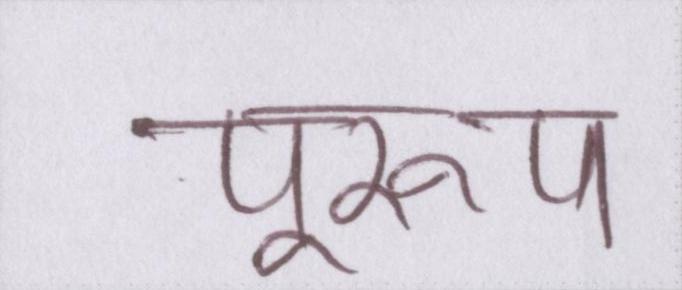 पूरूप